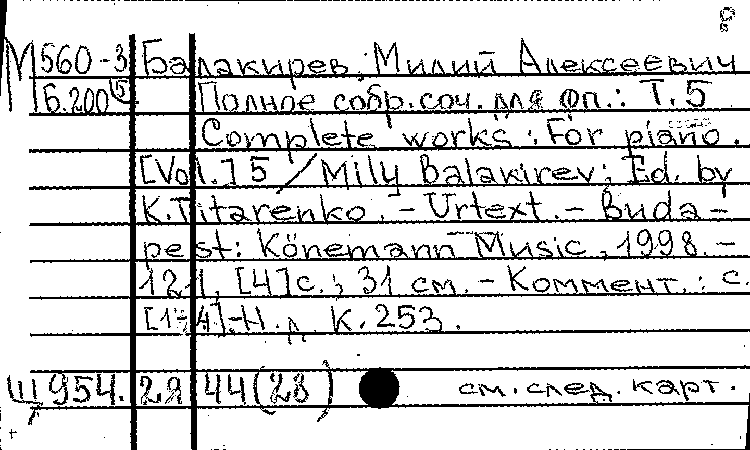 М560-3 Балакирев, Милий Алексеевич
Б.200(5) Полное собр.соч. для фп.: Т.5
Complete works : For piano.
[Vol.]5 / Mily Balakirev; Ed. by
K.Titarenko. – Urtext. – Buda-
pest: Könemann Music, 1998. –
121, [4]с.; 31 см. – Коммент.: с.
[1-4]. – Н. д. К.253.
Щ954.2Я44(28) см. след. карт.